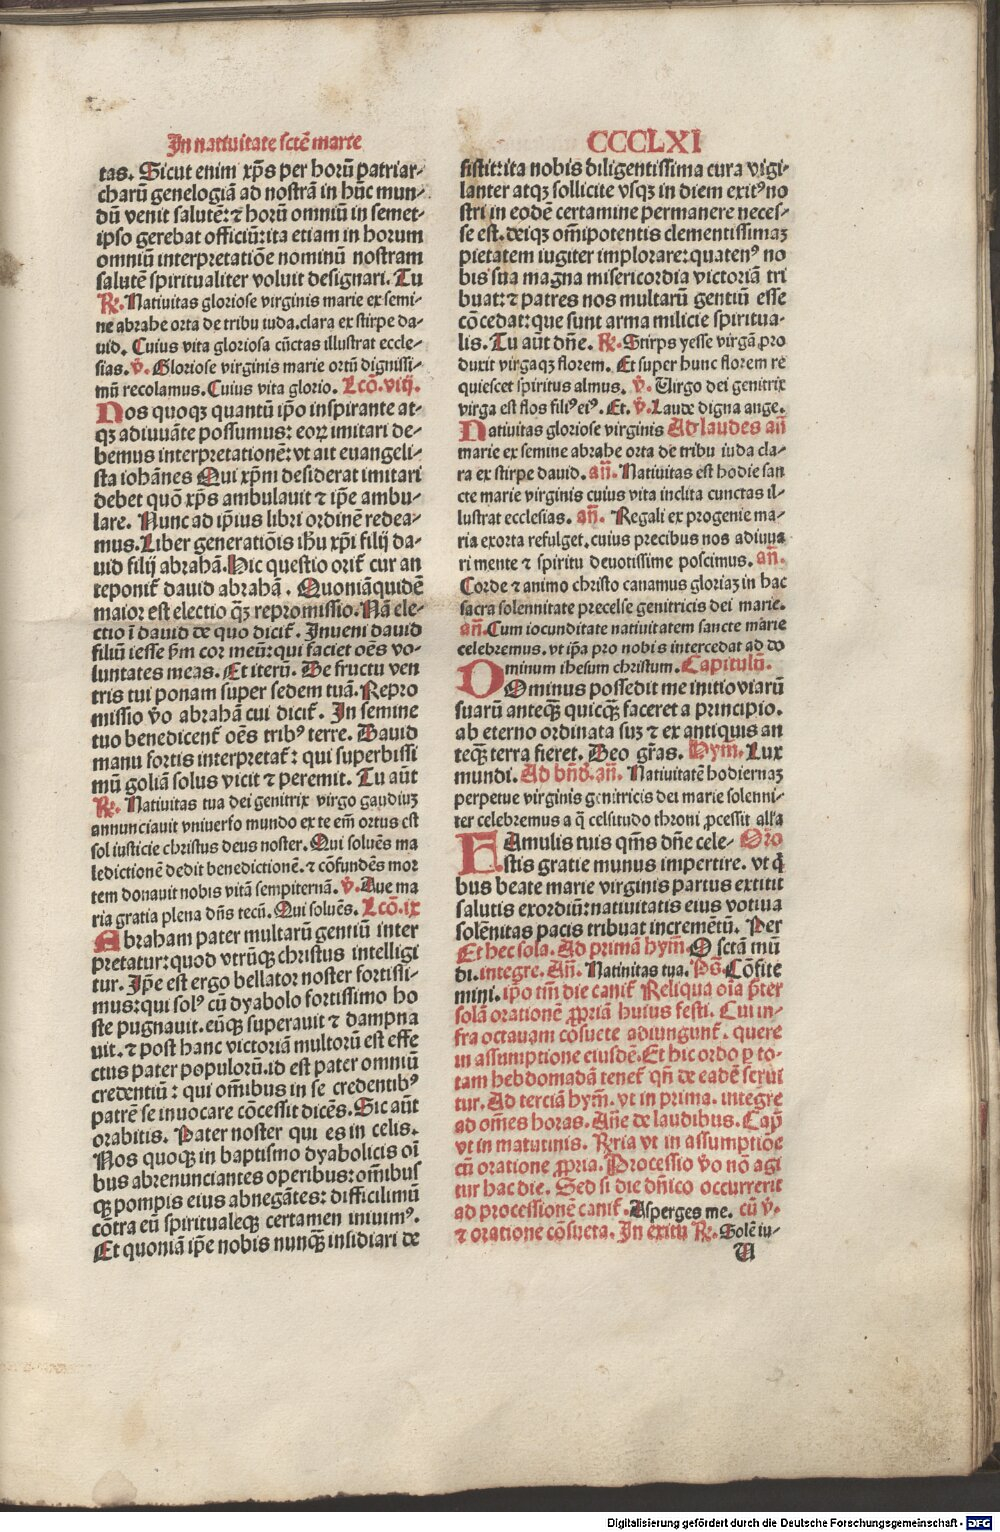 In natiuitate sctē marie
CCCLXI
tas. Sicut enim xp̄s per horū patriar-
charū genelogiā ad nostrā in hūc mun-
dū venit salutē: ⁊ horū omniū in semet-
ipso gerebat officiū: ita etiam in horum
omniū interpretatiōe nominū nostram
salutē spiritualiter voluit designari. Tu
R̷. Natiuitas gloriose virginis marie ex semi-
ne abrahe orta de tribu iuda. clara ex stirpe da-
uid. Cuius vita gloriosa cūctas illustrat eccle-
sias. v̷. Gloriose virginis marie ortū dignissi-
mū recolamus. Cuius vita glorio. Lcō. viij.
Nos quoqꝫ quantū ip̄o inspirante at-
qꝫ adiuuāte possumus: eoꝝ imitari de-
bemus interpretationē: vt ait euangeli-
sta iohānes Qui xp̄m desiderat imitari
debet quō xp̄s ambulauit ⁊ ip̄e ambu-
lare. Nunc ad ip̄ius libri ordinē redea-
mus. Liber generatiōis ih̄u xp̄i filij da-
uid filij abrahā. Hic questio orit̄ cur an
teponit̄ dauid abrahā. Quoniāquidē
maior est electio qꝫ̄ repromissio. Nā ele-
ctio ī dauid de quo dicit̄. Inueni dauid
filiū iesse ẜm cor meū: qui faciet oēs vo-
luntates meas. Et iterū. De fructu ven
tris tui ponam super sedem tuā. Repro
missio v̄o abrahā cui dicit̄. In semine
tuo benedicent̄ oēs tribꝰ terre. Dauid
manu fortis interpretat̄: qui superbissi
mū goliā solus vicit ⁊ peremit. Tu aūt
R̷. Natiuitas tua dei genitrix virgo gaudiuꝫ
annunciauit vniuerso mundo ex te em̄ ortus est
sol iusticie christus deus noster. Qui soluēs ma
ledictionē dedit benedictionē. ⁊ cōfundēs mor
tem donauit nobis vitā sempiternā. v̷. Aue ma
ria gratia plena dn̄s tecū. Qui soluēs. Lcō. ix
Abraham pater multarū gentiū inter
pretatur: quod vtrūqꝫ christus intelligi
tur. Ip̄e est ergo bellator noster fortissi-
mus: qui solꝰ cū dyabolo fortissimo ho
ste pugnauit. eūqꝫ superauit ⁊ dampna
uit. ⁊ post hanc victoriā multorū est effe
ctus pater populorū. id est pater omniū
credentiū: qui om̄ibus in se credentibꝰ
patrē se inuocare cōcessit dicēs. Sic aūt
orabitis. Pater noster qui es in celis.
Nos quoqꝫ in baptismo dyabolicis oī
bus abrenunciantes operibus: om̄ibus
qꝫ pompis eius abnegātes: difficilimū
cōtra eū spiritualeqꝫ certamen iniuimꝰ.
Et quoniā ip̄e nobis nunqꝫ̄ insidiari de
sistit: ita nobis diligentissima cura vigi-
lanter atqꝫ sollicite vsqꝫ in diem exitꝰ no
stri in eodē certamine permanere neces-
se est. deiqꝫ om̄ipotentis clementissimaꝫ
pietatem iugiter implorare: quatenꝰ no
bis sua magna misericordia victoriā tri
buat: ⁊ patres nos multarū gentiū esse
cōcedat: que sunt arma milicie spiritua-
lis. Tu aūt dn̄e. R̷. Stirps yesse virgā ꝓro
duxit virgaqꝫ florem. Et super hunc florem re
quiescet spiritus almus. v̷. Uirgo dei genitrix
virga est flos filiꝰ eiꝰ. Et. v̷. Laude digna ange.
Natiuitas gloriose virginis Ad laudes an̄
marie ex semine abrahe orta de tribu iuda cla-
ra ex stirpe dauid. an̄. Natiuitas est hodie san
cte marie virginis cuius vita inclita cunctas il-
lustrat ecclesias. an̄. Regali ex progenie ma-
ria exorta refulget. cuius precibus nos adiuua
ri mente ⁊ spiritu deuotissime poscimus. an̄.
Corde ⁊ animo christo canamus gloriaꝫ in hac
sacra solennitate precelse genitricis dei marie.
an̄. Cum iocunditate natiuitatem sancte marie
celebremus. vt ip̄a pro nobis intercedat ad do
minum ihesum christum. Capitulū.
DOminus possedit me initio viarū
suarū anteqꝫ̄ quicqꝫ̄ faceret a principio.
ab eterno ordinata suꝫ ⁊ ex antiquis an
teqꝫ̄ terra fieret. Deo gr̄as. Hym̄. Lux
mundi. Ad bn̄d. an̄. Natiuitatē hodiernaꝫ
perpetue virginis genitricis dei marie solenni-
ter celebremus a q̄ celsitudo throni ꝓcessit alla
FAmulis tuis qm̄s dn̄e cele- Orō
stis gratie munus impertire. vt q̇
bus beate marie virginis partus extitit
salutis exordiū: natiuitatis eius votiua
solēnitas pacis tribuat incremētū. Per
Et hec sola. Ad primā hym̄. O sctā mū
di. integre. An̄. Natiuitas tua. Ps̄. Cōfite
mini. ip̄o tm̄ die canit̄ Reliqua oīa p̄ter
solā orationē ꝓpriā huius festi. Cui in-
fra octauam cōsuete adiungunt̄. quere
in assumptione eiusdē. Et hic ordo ꝑ to-
tam hebdomadā tenet̄ qn̄ de eadē serui
tur. Ad terciā hym̄. vt in prima. integre
ad om̄es horas. An̄e de laudibus. Cap̄
vt in matutinis. R̷ria vt in assumptiōe
cū oratione ꝓpria. Processio v̄o nō agi
tur hac die. Sed si die dn̄ico occurrerit
ad processionē canit̄. Asperges me. cū v̷.
⁊ oratione cōsueta. In exitu R̷. Solē iu-
U
Digitalisierung gefördert durch die Deutsche Forschungsgemeinschaft - DFG